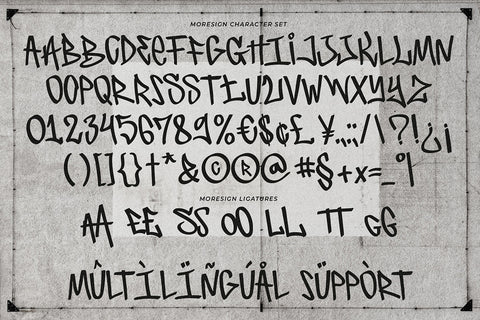 MORESIGN CHARACTER SET
AABBCDEeFFGGHIiJJJKLLMN
OOPQRRSSSTŁUZUVWXYyZ
0123456789%€$¢£ ¥.,:;/\|?!¿¡
()[]{}†*&©®@#§+x=_°|
MORESIGN LIGATURES
AA EE SS OO LL TT GG
MÛLTÌLÏÑGÚÅL SÜPPÒRT